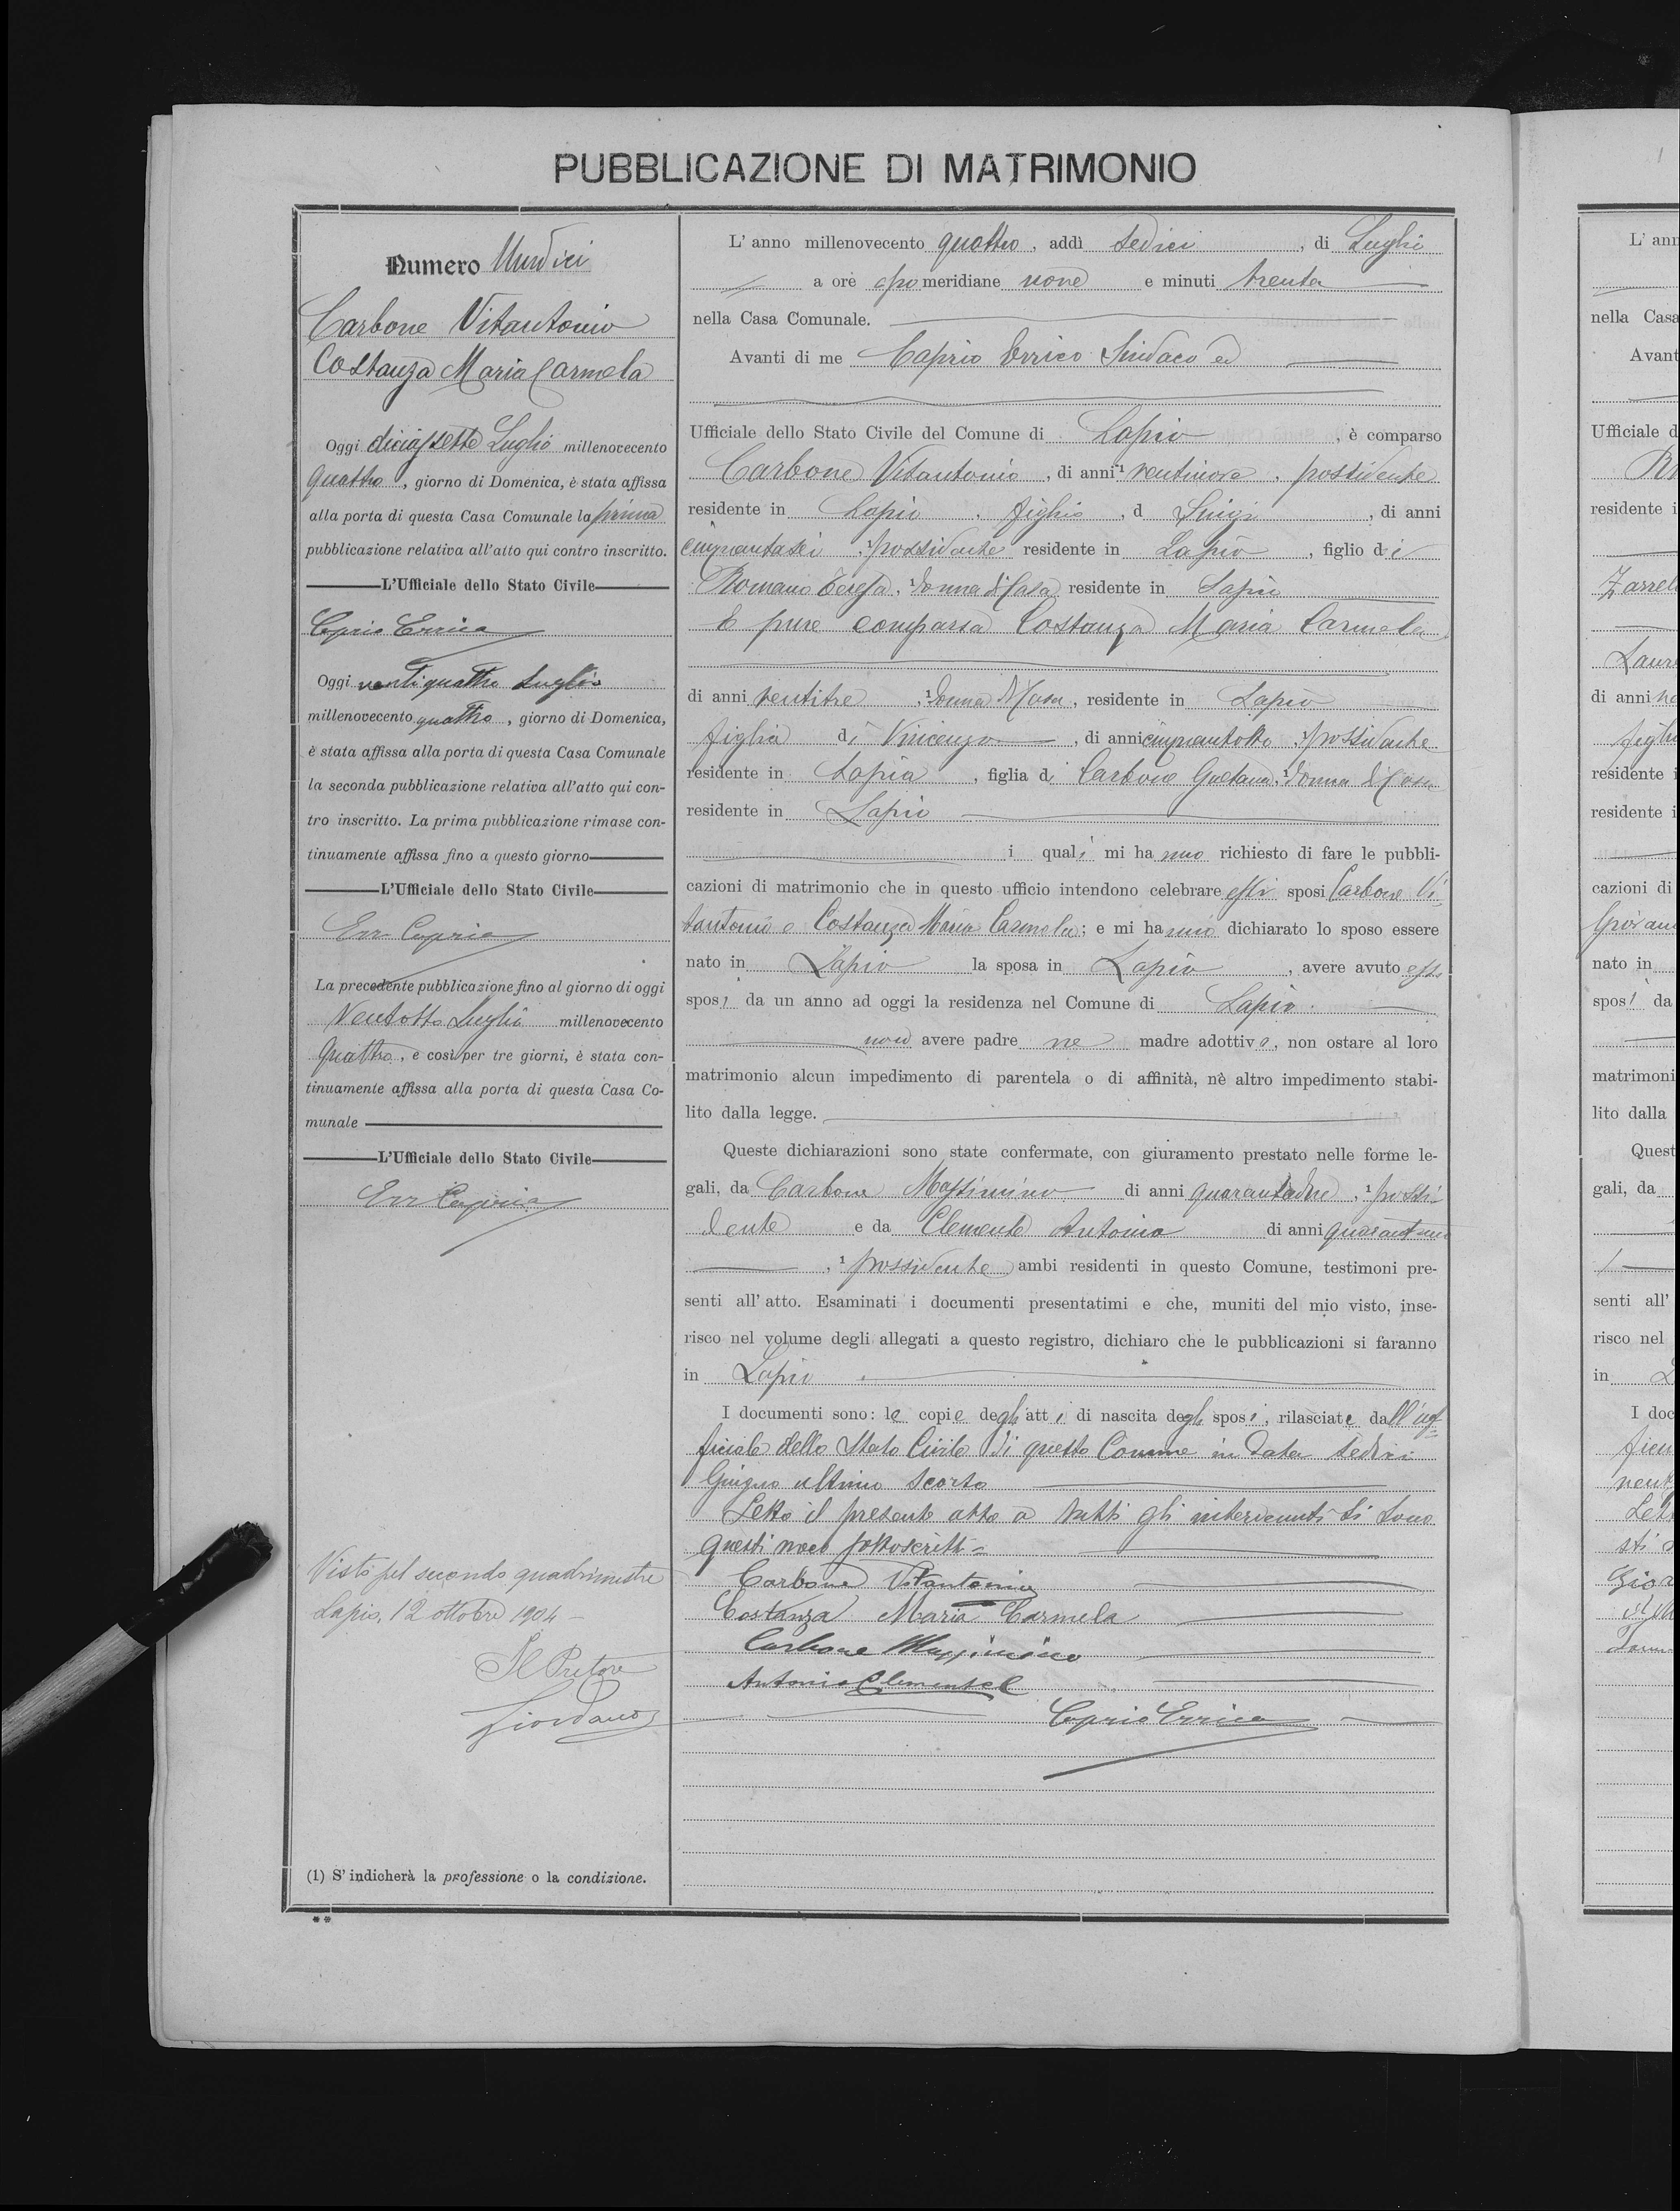 PUBBLICAZIONE DI MATRIMONIO
Numero Undici
Carbone Vitantonio
Costanza Maria Carmela
Oggi diciassette Luglio millenovecento
quattro, giorno di Domenica, è stata affissa
alla porta di questa Casa Comunale la prima
pubblicazione relativa all'atto qui contro inscritto.
L'Ufficiale dello Stato Civile
Caprio Errico
Oggi ventiquattro Luglio
millenovecento quattro, giorno di Domenica,
è stata affissa alla porta di questa Casa Comunale
la seconda pubblicazione relativa all'atto qui con-
tro inscritto. La prima pubblicazione rimase con-
tinuamente affissa fino a questo giorno
L'Ufficiale dello Stato Civile
Err Caprio
La precedente pubblicazione fino al giorno di oggi
Ventotto Luglio millenovecento
quattro, e così per tre giorni, è stata con-
tinuamente affissa alla porta di questa Casa Co-
munale
L'Ufficiale dello Stato Civile
Err Caprio
Visto pel secondo quadrimestre
Lapio, 12 ottobre 1904 -
Il Pretore
Giordano
(1) S'indicherà la professione o la condizione.
**
L'anno millenovecento quattro, addì sedici, di Luglio
a ore pomeridiane nove e minuti trenta
nella Casa Comunale.
Avanti di me Caprio Errico Sindaco ed
Ufficiale dello Stato Civile del Comune di Lapio, è comparso
Carbone Vitantonio, di anni ¹ ventinove, possidente
residente in Lapio, figlio, d Luigi, di anni
cinquantasei, ¹possidente residente in Lapio, figlio di
Romano Teresa, ¹donna di Casa residente in Lapio
È pure comparsa Costanza Maria Carmela
di anni ventitre, ¹donna di Casa, residente in Lapio
figlia di Vincenzo, di anni cinquantotto, ¹possidente
residente in Lapio, figlia di Carbone Gaetana, ¹donna di Casa
residente in Lapio
i quali mi hanno richiesto di fare le pubbli-
cazioni di matrimonio che in questo ufficio intendono celebrare essi sposi Carbone Vi-
tantonio e Costanza Maria Carmela; e mi hanno dichiarato lo sposo essere
nato in Lapio la sposa in Lapio, avere avuto essi
sposi da un anno ad oggi la residenza nel Comune di Lapio.
non avere padre ne madre adottivo, non ostare al loro
matrimonio alcun impedimento di parentela o di affinità, nè altro impedimento stabi-
lito dalla legge.
Queste dichiarazioni sono state confermate, con giuramento prestato nelle forme le-
gali, da Carbone Massimino di anni quarantadue, ¹ possi-
dente e da Clemente Antonio di anni quarantuno
, ¹ possidente ambi residenti in questo Comune, testimoni pre-
senti all'atto. Esaminati i documenti presentatimi e che, muniti del mio visto, inse-
risco nel volume degli allegati a questo registro, dichiaro che le pubblicazioni si faranno
in Lapio.
I documenti sono: le copie degli atti di nascita degli sposi, rilasciate dall'uf-
ficiale dello Stato Civile di questo Comune in data sedici
Giugno ultimo scorso
Letto il presente atto a tutti gli intervenuti si sono
questi meco sottoscritti =
Carbone Vitantonio
Costanza Maria Carmela
Carbone Massimino
Antonio Clemente
Caprio Errico
L'ann
nella Casa
Avant
Ufficiale d
residente i
Zarrel
di anni
figli
residente i
residente i
cazioni di
nato in
sposi da
matrimoni
lito dalla
Quest
gali, da
senti all'
risco nel
in
I doc